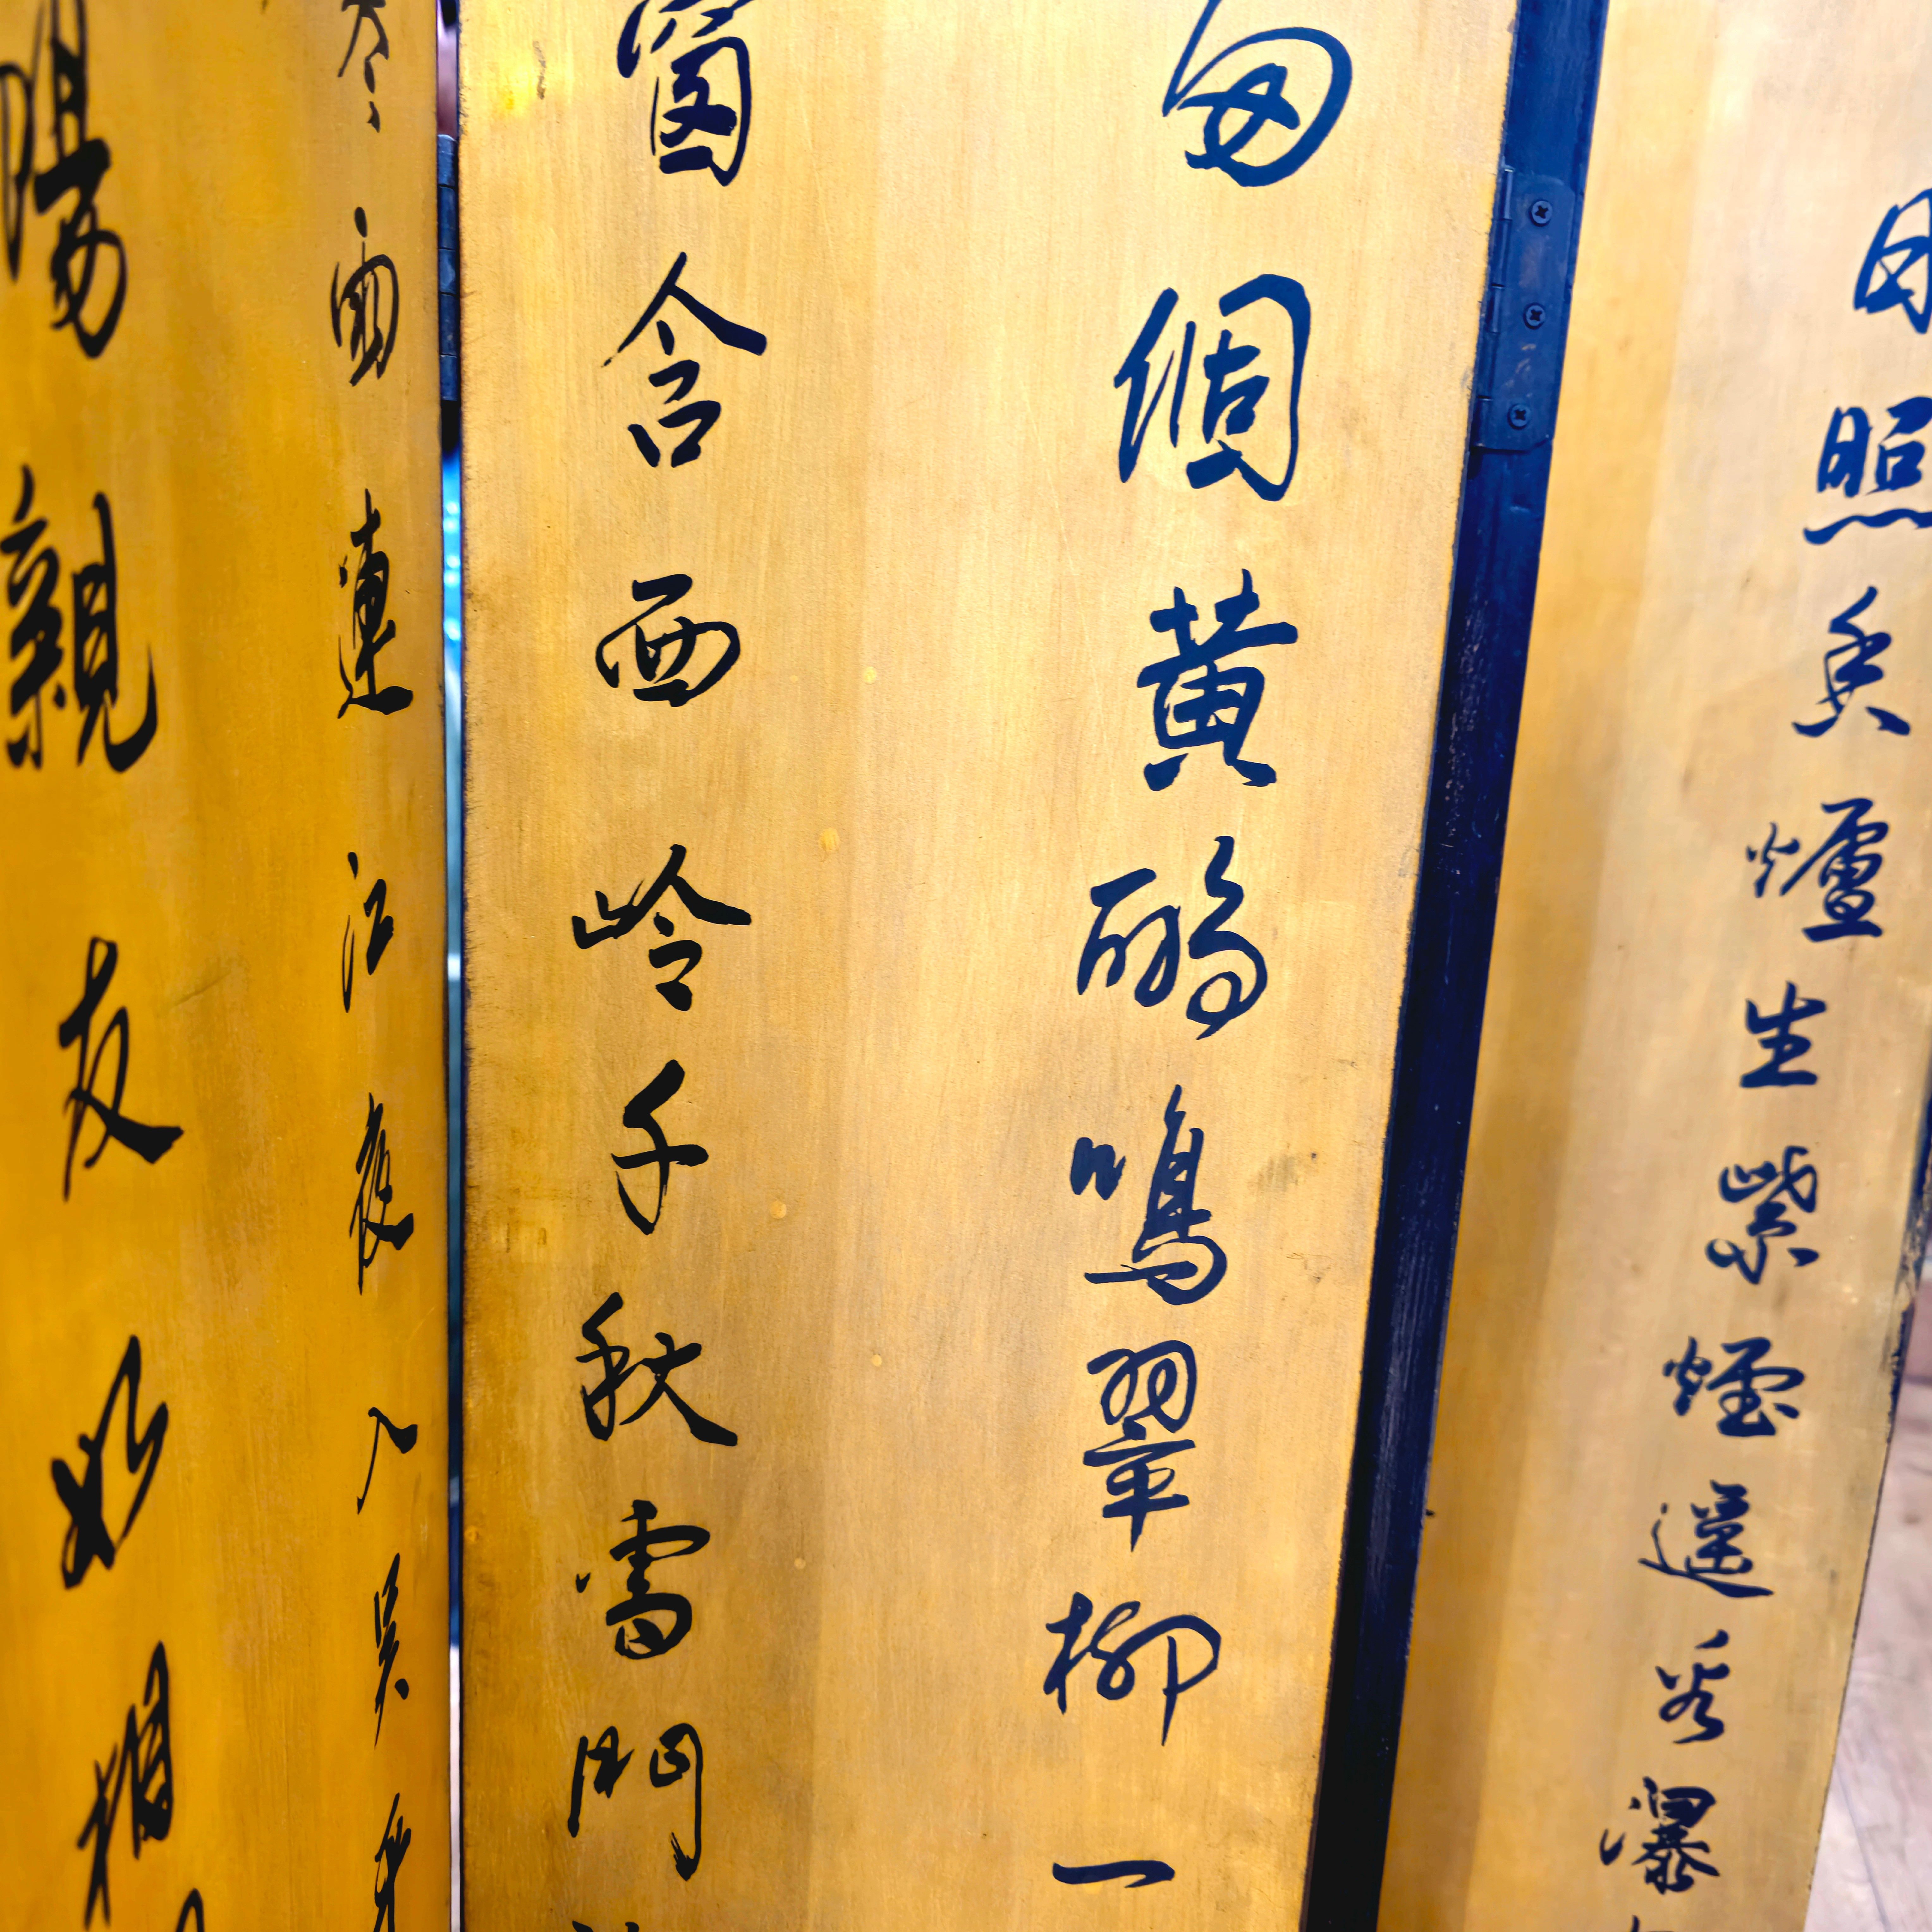 日照香爐生紫煙遙看瀑
兩個黃鸝鳴翠柳一
窗含西岭千秋雪門
寒雨連江夜入吳平
陽親友如相